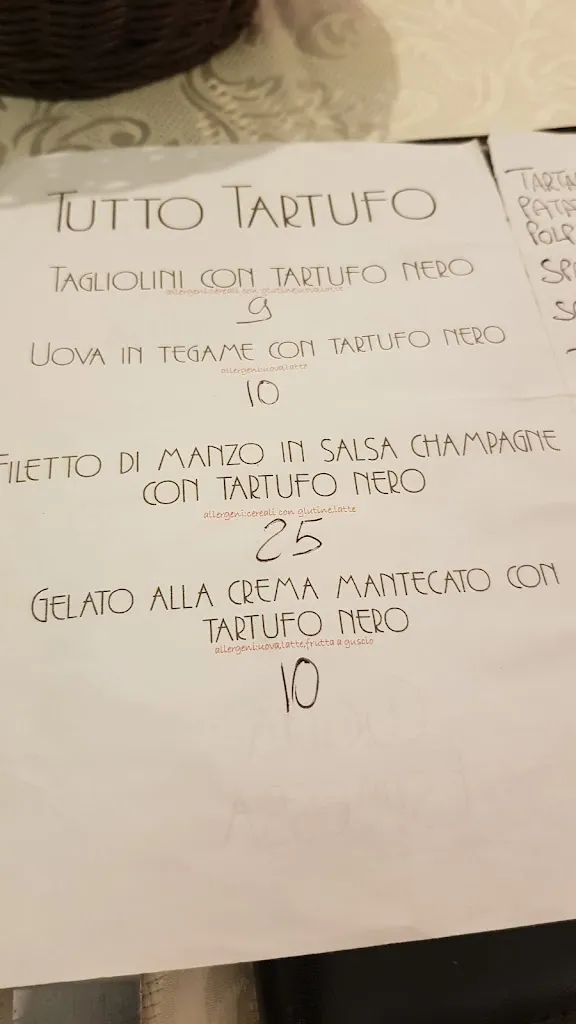 TUTTO TARTUFO
TAGLIOLINI CON TARTUFO NERO
allergeni:cereali con glutine,uova,latte
9
UOVA IN TEGAME CON TARTUFO NERO
allergeni:uova,latte
10
FILETTO DI MANZO IN SALSA CHAMPAGNE
CON TARTUFO NERO
allergeni:cereali con glutine,latte
25
GELATO ALLA CREMA MANTECATO CON
TARTUFO NERO
allergeni:uova,latte,frutta a guscio
10
TARTA
PATA
POLP